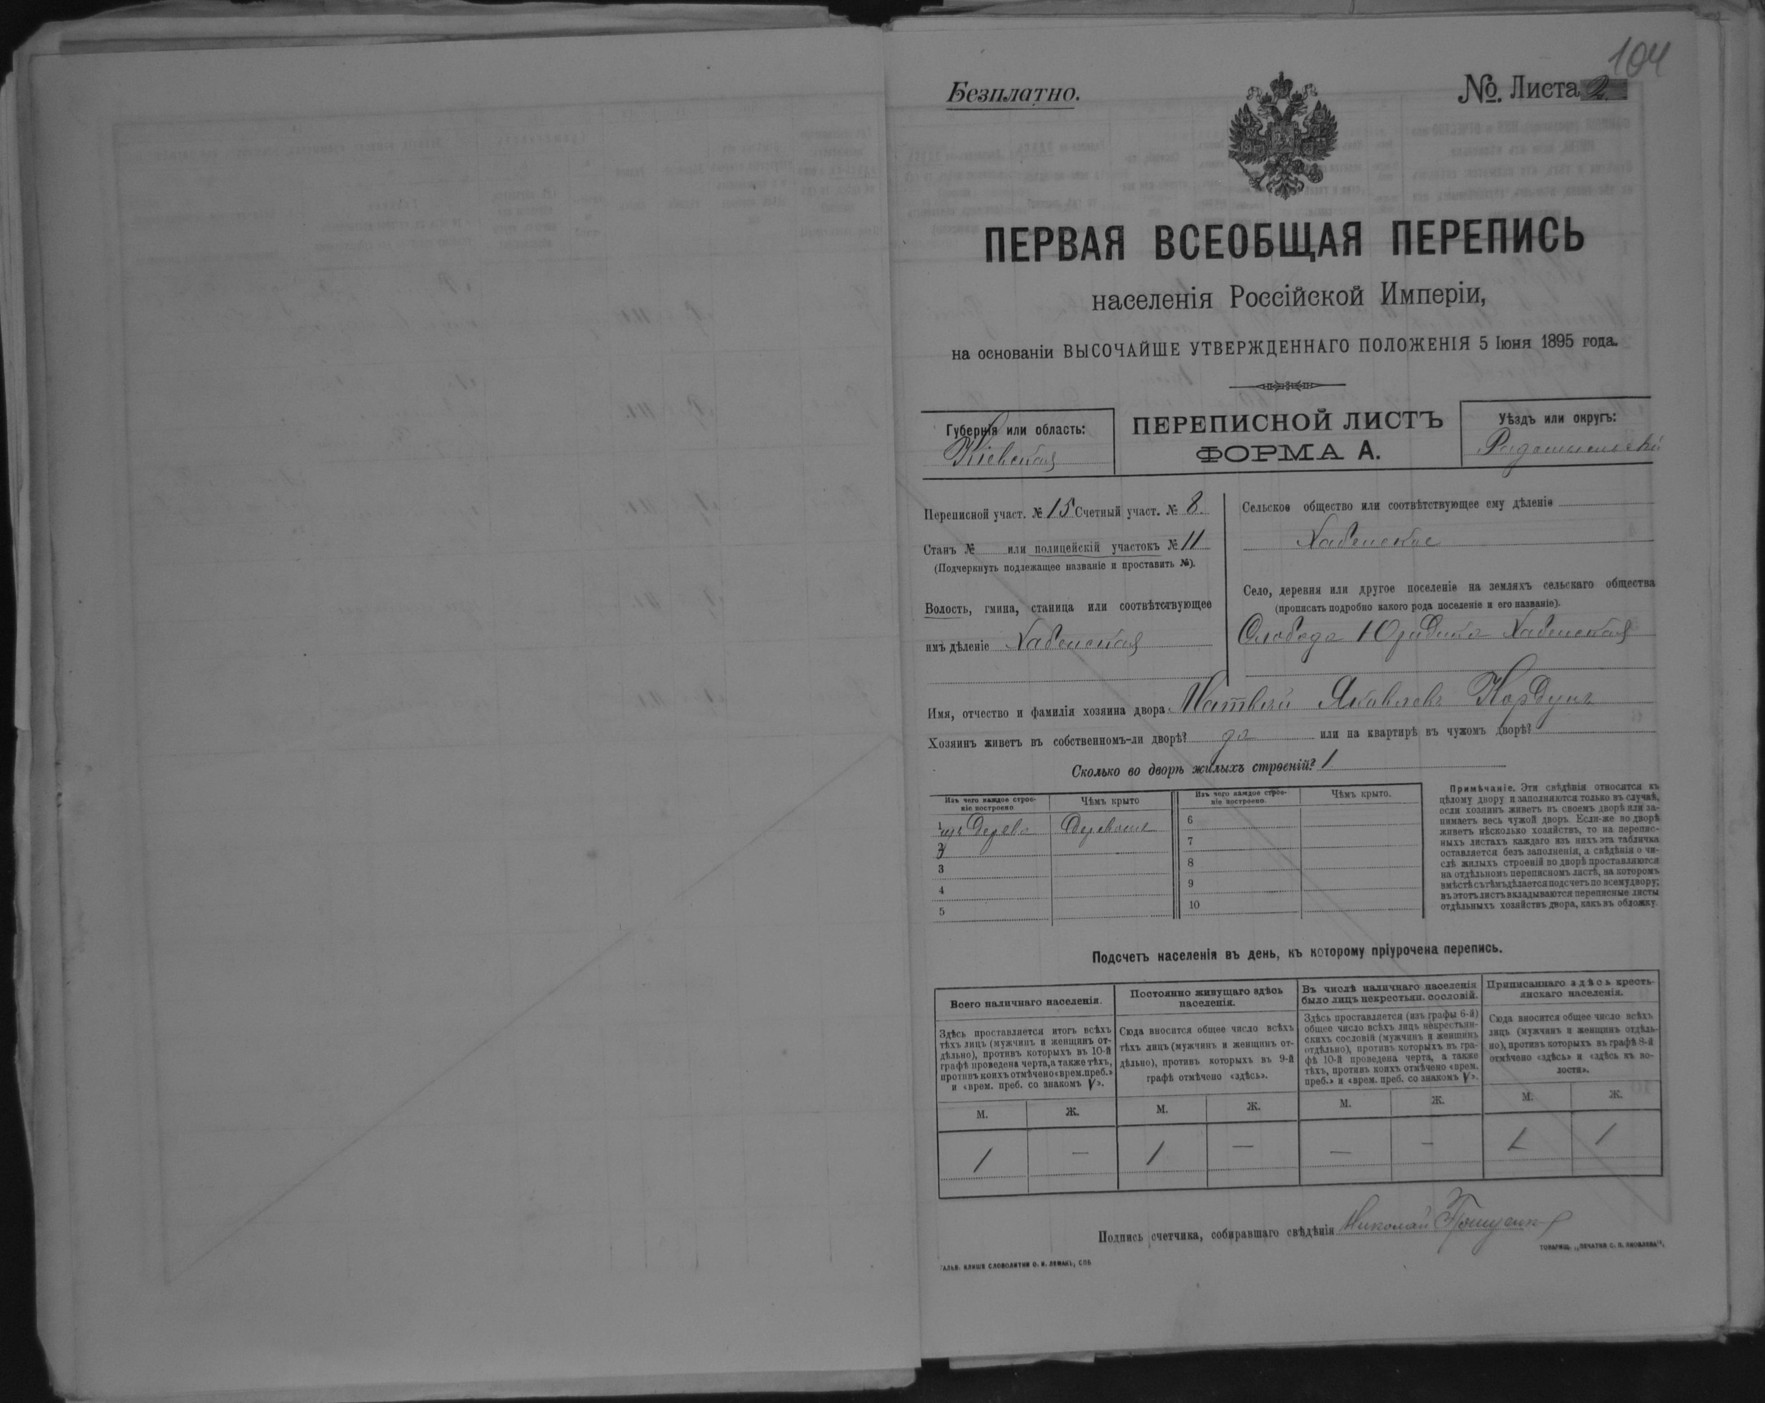 104
Безплатно.
№. Листа 2
ПЕРВАЯ ВСЕОБЩАЯ ПЕРЕПИСЬ
населенія Россійской Имперіи,
на основаніи ВЫСОЧАЙШЕ УТВЕРЖДЕННАГО ПОЛОЖЕНІЯ 5 Іюня 1895 года.
Губернія или область:
Кіевская
ПЕРЕПИСНОЙ ЛИСТЪ
ФОРМА А.
Уѣздъ или округъ:
Радомысльскій
Переписной участ. № 15 Счетный участ. № 8
Станъ № или полицейскій участокъ № 11
(Подчеркнуть подлежащее названіе и проставить №).
Волость, гмина, станица или соотвѣтствующее
имъ дѣленіе Хабенская
Сельское общество или соотвѣтствующее ему дѣленіе
Хабенское
Село, деревня или другое поселеніе на земляхъ сельскаго общества
(прописать подробно какого рода поселеніе и его названіе).
Слобода Юридика Хабенская
Имя, отчество и фамилія хозяина двора Матвѣй Яковлевъ Кордунъ
Хозяинъ живетъ въ собственномъ-ли дворѣ? да или на квартирѣ въ чужомъ дворѣ?
Сколько во дворѣ жилыхъ строеній? 1
Изъ чего каждое строе-
ніе построено
Чѣмъ крыто
Изъ чего каждое строе-
ніе построено
Чѣмъ крыто.
1 изъ дерева
2
3
4
5
6
7
8
9
10
Примѣчаніе. Эти свѣдѣнія относятся къ
цѣлому двору и заполняются только въ случаѣ,
если хозяинъ живетъ въ своемъ дворѣ или за-
нимаетъ весь чужой дворъ. Если-же во дворѣ
живетъ нѣсколько хозяйствъ, то на перепис-
ныхъ листахъ каждаго изъ нихъ эта табличка
оставляется безъ заполненія, а свѣдѣнія о чи-
слѣ жилыхъ строеній во дворѣ проставляются
на отдѣльномъ переписномъ листѣ, на которомъ
вмѣстѣ съ тѣмъ дѣлается подсчетъ по всему двору;
въ этотъ листъ вкладываются переписные листы
отдѣльныхъ хозяйствъ двора, какъ въ обложку.
Подсчетъ населенія въ день, къ которому пріурочена перепись.
Всего наличнаго населенія.
Здѣсь проставляется итогъ всѣхъ
тѣхъ лицъ (мужчинъ и женщинъ от-
дѣльно), противъ которыхъ въ 10-й
графѣ проведена черта, а также тѣхъ,
противъ коихъ отмѣчено «врем. преб.»
и «врем. преб. со знакомъ V».
Постоянно живущаго здѣсь
населенія.
Сюда вносится общее число всѣхъ
тѣхъ лицъ (мужчинъ и женщинъ от-
дѣльно), противъ которыхъ въ 9-й
графѣ отмѣчено «здѣсь».
Въ числѣ наличнаго населенія
было лицъ некрестьян. сословій.
Здѣсь проставляется (изъ графы 6-й)
общее число всѣхъ лицъ некрестьян-
скихъ сословій (мужчинъ и женщинъ
отдѣльно), противъ которыхъ въ гра-
фѣ 10-й проведена черта, а также
тѣхъ, противъ коихъ отмѣчено «врем.
преб.» и «врем. преб. со знакомъ V».
Приписаннаго здѣсь кресть-
янскаго населенія.
Сюда вносится общее число всѣхъ
лицъ (мужчинъ и женщинъ отдѣль-
но), противъ которыхъ въ графѣ 8-й
отмѣчено «здѣсь» и «здѣсь въ во-
лости».
М. Ж. М. Ж. М. Ж. М. Ж.
1 — 1 — — — 1 1
Подпись счетчика, собиравшаго свѣдѣнія Николай
ТОВАРИЩ. „ПЕЧАТНЯ С. П. ЯКОВЛЕВА“.